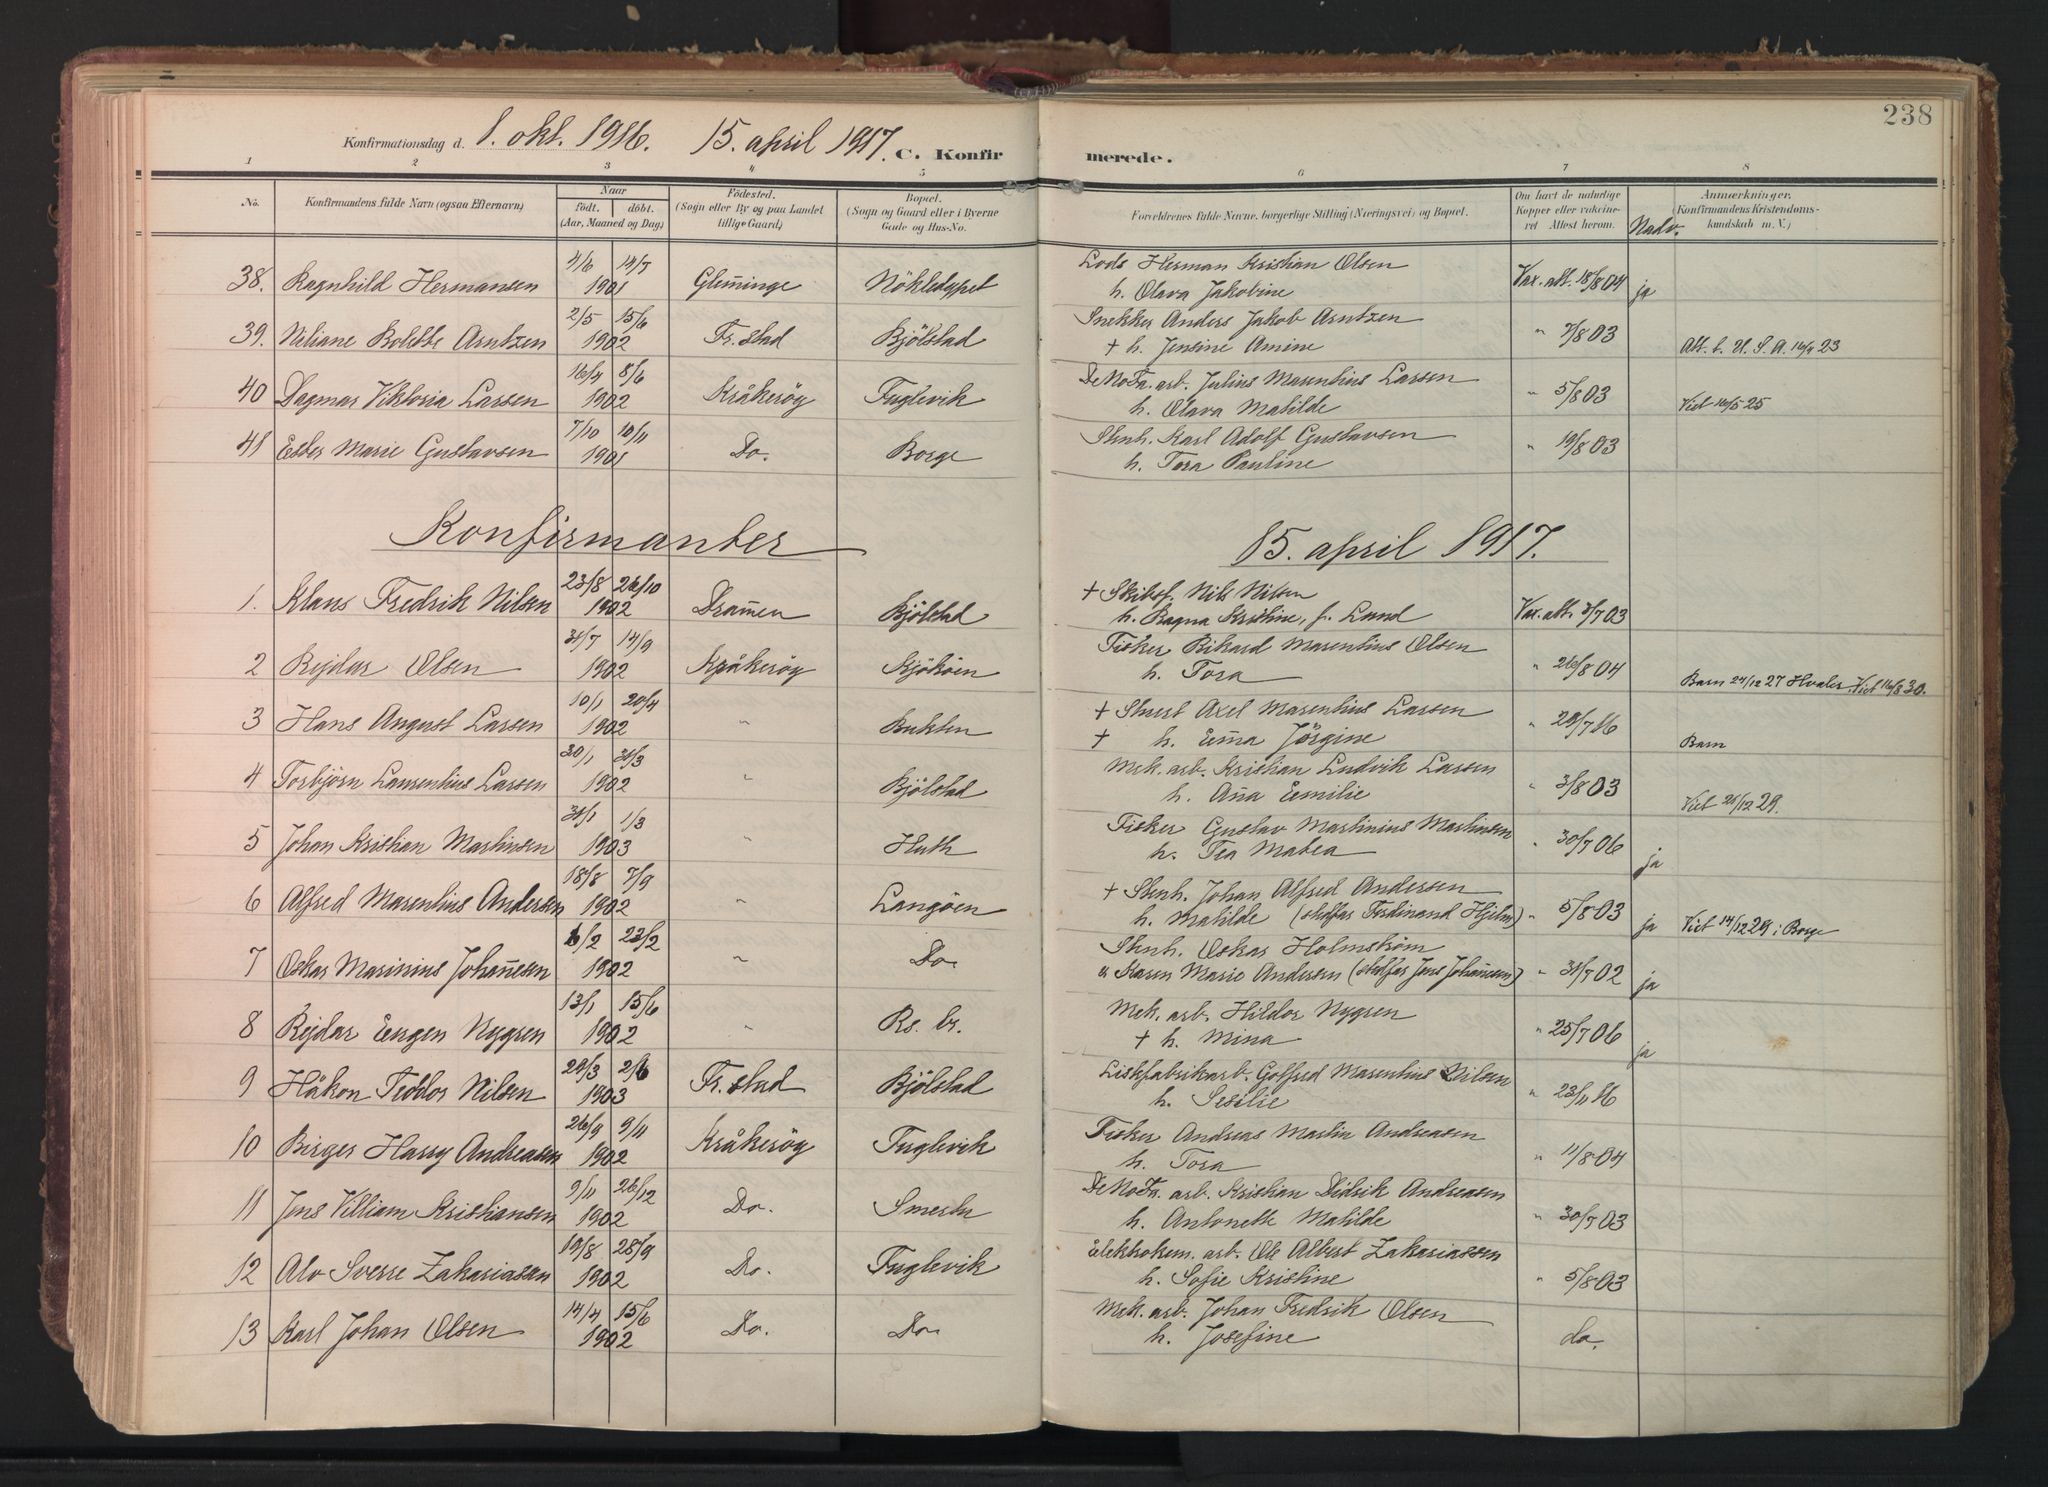 238
Konfirmationsdag d. 1. okt. 1916. 15. april 1917. C. Konfirmerede.
1 2 3 4 5 6 7 8
No. Konfirmandens fulde Navn (ogsaa Efternavn) Naar födt. döbt. (Aar, Maaned og Dag) Födested. (Sogn eller By og paa Landet tillige Gaard) Bopæl. (Sogn og Gaard eller i Byerne Gade og Hus-No. Forældrenes fulde Navne, borgerlige Stilling (Næringsvei) og Bopæl. Om havt de naturlige Kopper eller vaccineret Attest herom. Nadv. Anmærkninger. Konfirmandens Kristendomskundskab m. V.)
38. Ragnhild Hermansen 4/6 14/7 1901 Glem̄inge Nökledypet Lods Herman Kristian Olsen h. Olava Jakobine Vax. att. 18/8 04 ja
39. Niliane Bolette Arntzen 2/5 15/6 1902 Fr.stad Bjölstad Snekker Anders Jakob Arntzen + h. Jensine Amine " 7/8 03 Att. t. U. S. A. 16/4 23
40 Dagmar Viktoria Larsen 16/4 8/6 1902 Kråkeröy Fuglevik DeNoFa. arb. Julius Marentius Larsen h. Olava Matilde " 5/8 03 Viet 16/5 25
41 Ester Marie Gustavsen 7/10 10/11 1901 Do. Borge Stenh. Karl Adolf Gustavsen h. Tora Pauline " 19/8 03
Konfirmanter 15. april 1917.
1. Klaus Fredrik Nilsen 23/8 26/10 1902 Dram̄en Bjölstad + Skibsf. Nils Nilsen h. Ragna Kristine, f. Lund Vax. att. 3/7 03
2 Rejdar Olsen 31/7 14/9 1902 Kråkeröy Kjököen Fisker Rikard Marentius Olsen h. Tora " 26/8 04 Barn 24/12 27 Hvaler. Viet 16/8 30.
3 Hans August Larsen 10/1 20/4 1902 " Bukten + Stuert Axel Marentius Larsen + h. Em̄a Jörgine " 29/7 16 Barn
4 Torbjörn Laurentius Larsen 30/1 31/3 1902 " Bjölstad Mek. arb. Kristian Ludvik Larsen h. An̄a Emilie " 3/8 03 Viet 26/12 29.
5 Johan Kristian Martinsen 31/1 1/3 1903 " Huth Fisker Gustav Martinius Martinsen h. Tea Matea " 30/7 06 ja
6 Alfred Marentius Andersen 18/8 7/9 1902 " Langöen + Stenh. Johan Alfred Andersen h. Matilde (stedfar Ferdinand Hjelm) " 5/8 03 ja Viet 14/12 29 i Borge
7 Oskar Marinius Johan̄esen 6/2 23/2 1902 " Do. Stenh. Oskar Holmström & Karen Marie Andersen (stedfar Jens Johan̄esen) " 31/7 02 ja
8 Rejdar Eugen Nygren 13/1 15/6 1902 " Rs. br. Mek. arb. Hildor Nygren + h. Mina " 25/7 06 ja
9 Håkon Teodor Nilsen 29/3 2/6 1903 Fr.stad Bjölstad Listfabrikarb. Golfred Marentius Nilsen h. Sesilie " 23/11 16
10 Birger Harry Andreasen 26/9 9/11 1902 Kråkeröy Fuglevik Fisker Andreas Martin Andreasen h. Tora " 11/8 04
11 Jens Villiam Kristiansen 9/11 26/12 1902 Do. Smertu DeNoFa. arb. Kristian Didrik Andreasen h. Antonette Matilde " 30/7 03
12 Alv Sverre Zakariassen 19/8 28/9 1902 Do. Fuglevik Elektrokem. arb. Ole Albert Zakariassen h. Sofie Kristine " 5/8 03
13 Karl Johan Olsen 14/4 15/6 1902 Do. Do. Mek. arb. Johan Fredrik Olsen h. Josefine do.